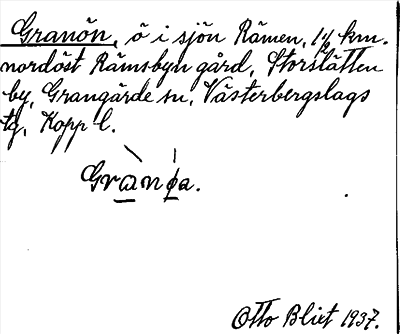 Granön, ö i sjön Rämen, 1½ km.
nordöst Rämsbyn gård, Storslätten
by, Grangärde sn, Västerbergslags
tg, Kopp l.
Granöa.
Otto Blixt 1937.